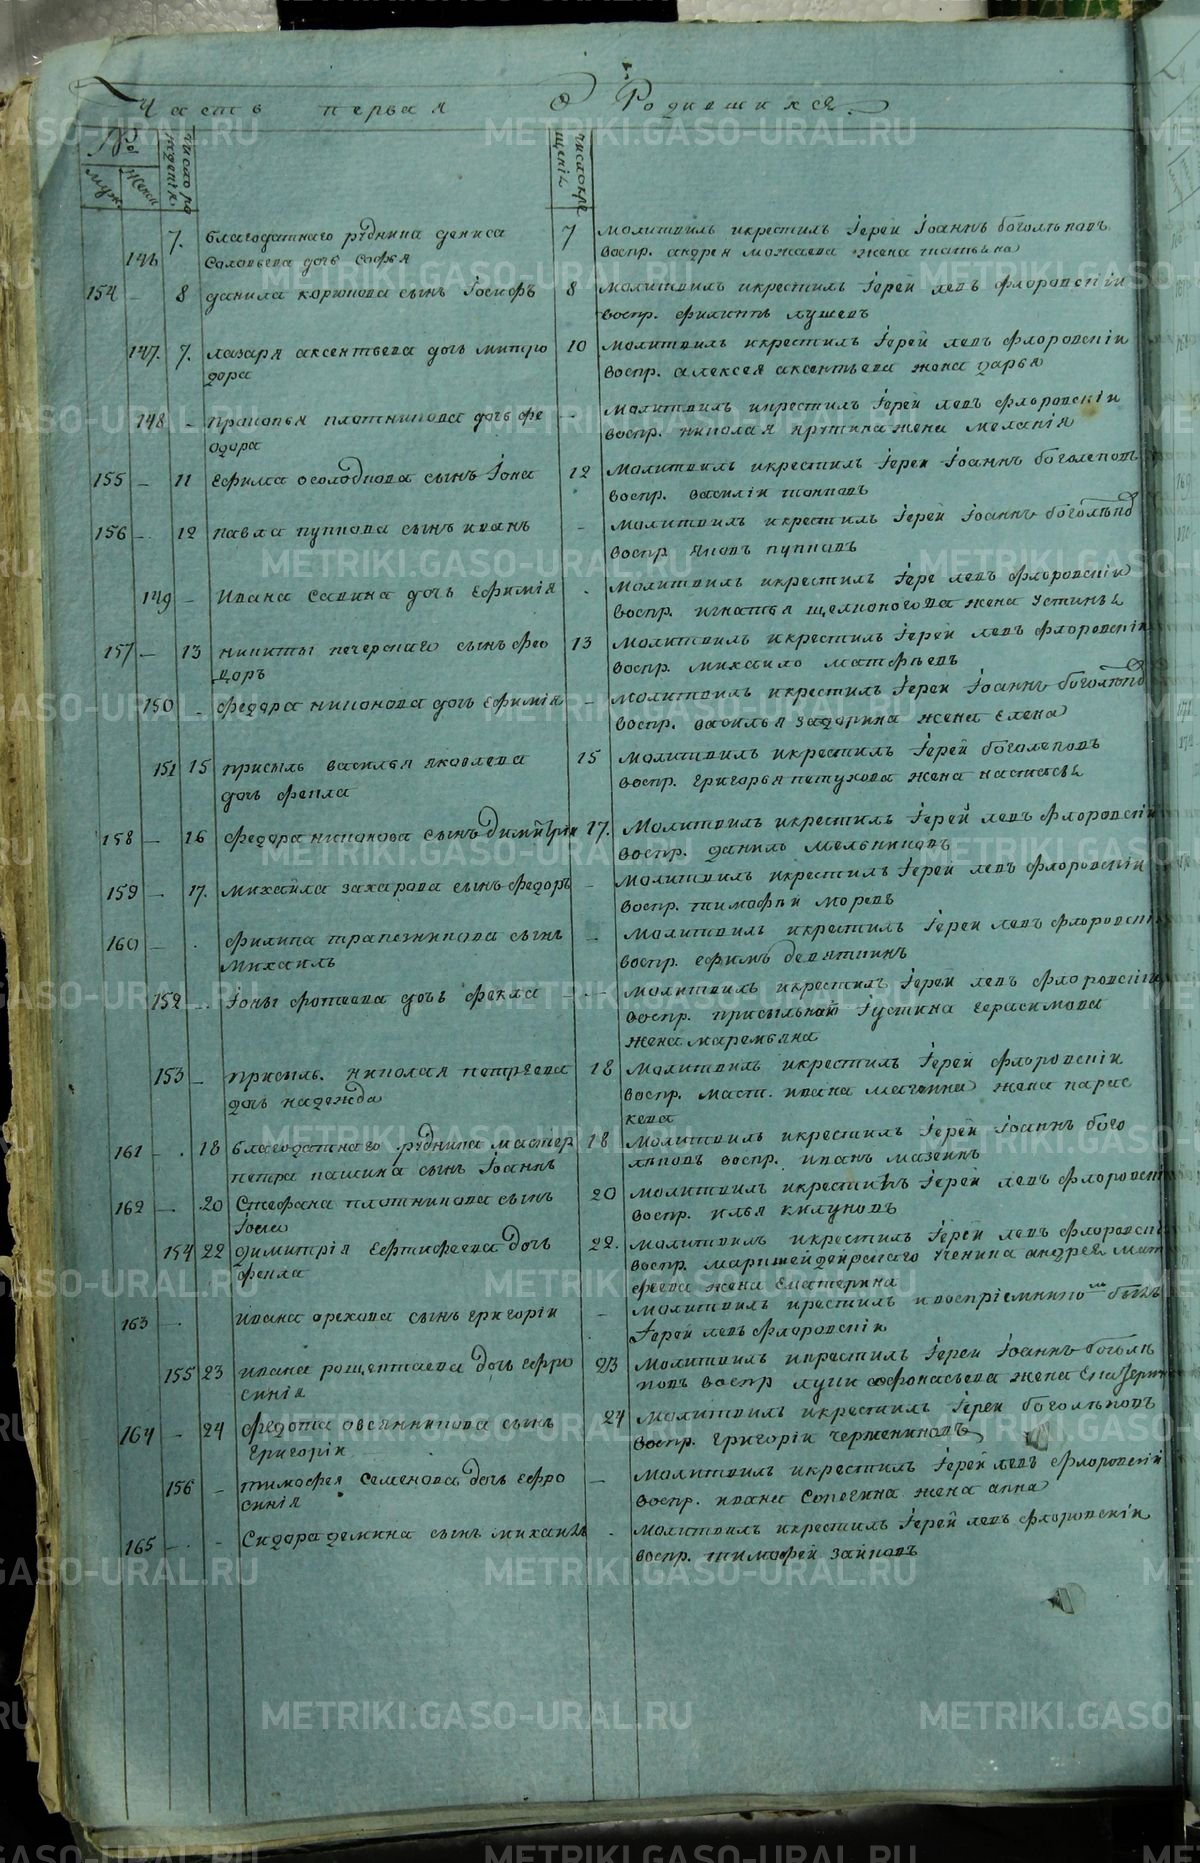 Часть первая о Родившихся.
№
Муж.
Женск
число рождения
число крещения
146 7. благодатнаго рудника дениса 7 Молитвилъ икрестилъ Іерей Іоаннъ боголѣповъ
Соловьева дочь Софья воспр. андрея можаева жена татьяна
154 8 данила корюкова сынъ Іосифъ 8 Молитвилъ икрестилъ Іерей левъ флоровскіи
воспр. филиппъ лушевъ
147. 7. лазаря аксентьева дочь митро 10 Молитвилъ икрестилъ Іерей левъ флоровскіи
дора воспр. алексея аксентьева жена дарья
148 - прокопья плотникова дочь фе - Молитвилъ икрестилъ Іерей левъ флоровскіи
одора воспр. николая крутика жена меланія
155 - 11 Ефима осолодкова сынъ Іона 12 Молитвилъ икрестилъ Іереи Іоаннъ боголеповъ
воспр. василіи
156 - 12 павла пупкова сынъ иванъ - Молитвилъ икрестилъ Іерей Іоаннъ боголѣпв
воспр яковъ пупковъ
149 - Ивана савина дочь Ефимія - Молитвилъ икрестилъ Іере левъ флоровскіи
воспр. игнатья щелконогова жена устинья
157 - 13 никиты печерскаго сынъ фео 13 Молитвилъ икрестилъ Іерей левъ флоровскіи
доръ воспр. михайло матфѣевъ
150 - федора никонова дочь Ефимія - Молитвилъ икрестилъ Іереи Іоаннъ боголѣпв
воспр. василья задорина жена Елена
151 15 присыль василья яковлева 15 Молитвилъ икрестилъ Іерей боголеповъ
дочь фекла воспр. григорья петухова жена настасья
158 - 16 федора никонова сынъ димитріи 17. Молитвилъ икрестилъ Іерей левъ флоровскіи
воспр. данилъ мельниковъ
159 - 17. михайла захарова сынъ федоръ - Молитвилъ икрестилъ Іерей левъ флоровскіи
воспр. тимофѣй моревъ
160 - - филипа трапезникова сынъ - Молитвилъ икрестилъ Іереи левъ флоровскіи
Михаилъ воспр. ефимъ девяткинъ
152 - Іоны фотеева дочь фекла - Молитвилъ икрестилъ Іерей левъ флоровскіи
воспр. присыльнаго Іустина герасимова
жена маремьяна
153 - присыль. николая петрѣева 18 Молитвилъ икрестилъ Іерей флоровскіи
дочь надежда воспр. маст. ивана жена парас
кева
161 - 18 благодатнаго рудника мастер 18 Молитвилъ икрестилъ Іерей Іоаннъ бого
петра пашина сынъ Іоаннъ лѣповъ воспр. иванъ мазеинъ
162 - 20 Стефана плотникова сынъ 20 Молитвилъ икрестилъ Іерей левъ флоровскіи
Іосиа воспр. илья килуновъ
154 22 димитрія Ефтифеева дочь 22. Молитвилъ икрестилъ Іерей левъ флоровскіи
фекла воспр. маркшейдерскаго ученика андрея мат
феева жена Екатерина
163 - ивана орехова сынъ григоріи - Молитвилъ крестилъ ивоспріемникомъ былъ
Іерей левъ флоровскіи
155 23 ивана рощектаева дочь ефро 23 Молитвилъ икрестилъ Іереи Іоаннъ боголѣ
синія повъ воспр луки афонасьева жена Екатерин
164 - 24 федота овсянникова сынъ 24 Молитвилъ икрестилъ Іереи боголѣповъ
григоріи воспр. григоріи черменниковъ
156 - тимофея семенова дочь ефро - Молитвилъ икрестилъ Іерей левъ флоровскіи
синія воспр. ивана сопегина жена анна
165 - - Сидора демина сынъ михаилъ - Молитвилъ икрестилъ Іерей левъ флоровскіи
воспр. тимофей зайковъ
METRIKI.GASO-URAL.RU